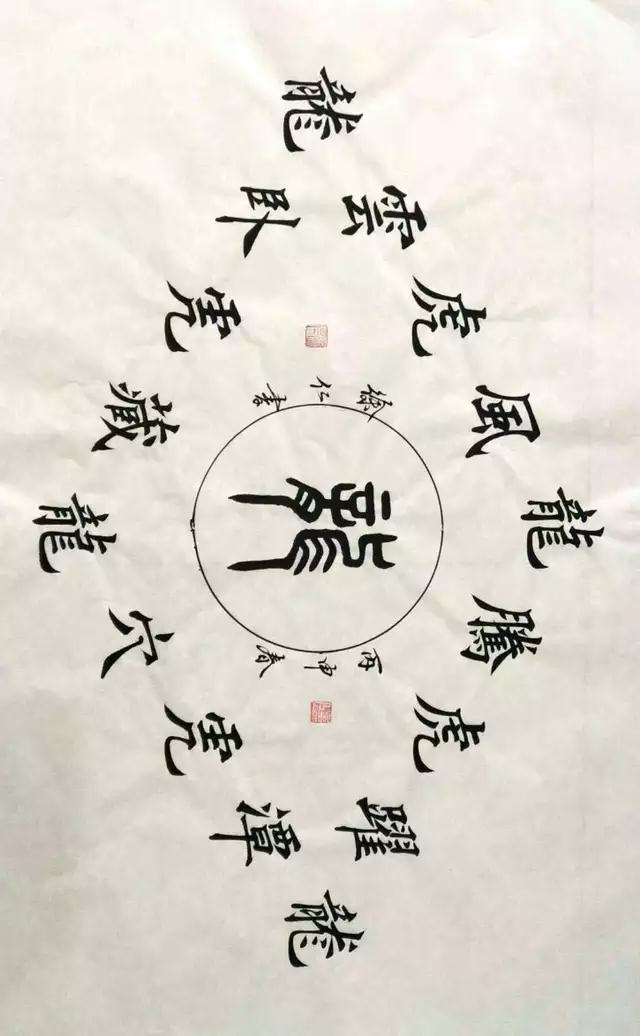 龍
雲 卧
虎 虎
徐仁書
風 藏
龍 龍 龍
騰 穴
丙申春
虎 虎
躍 潭
龍